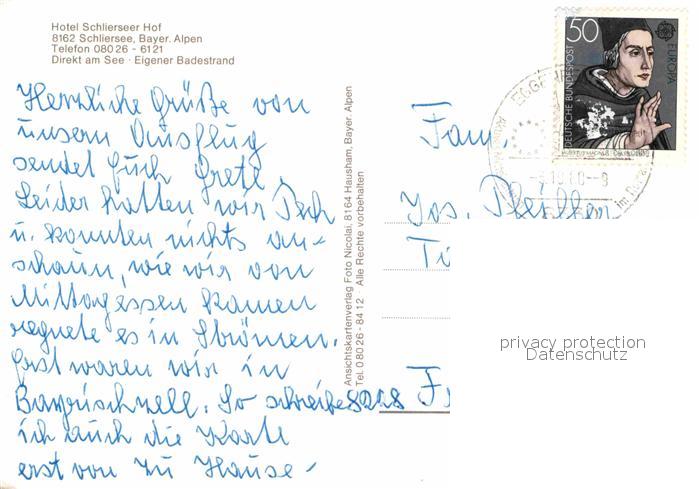 Hotel Schlierseer Hof
8162 Schliersee, Bayer. Alpen
Telefon 080 26 - 6121
Direkt am See · Eigener Badestrand
Herzliche Grüße von
unserm Ausflug
sendet Euch Grete.
Leider hatten wir Pech
u. konnten nichts an-
schaun, wie wir von
Mittagessen kamen
regnete es in Strömen.
Erst waren wir in
Bayrischzell. So schreibe
ich auch die Karte
erst von zu Hause -
Ansichtskartenverlag Foto Nicolai, 8164 Hausham, Bayer. Alpen
Tel. 0 80 26 - 84 12 Alle Rechte vorbehalten
50
DEUTSCHE BUNDESPOST
EUROPA
Fam.
Jos.
privacy protection
Datenschutz